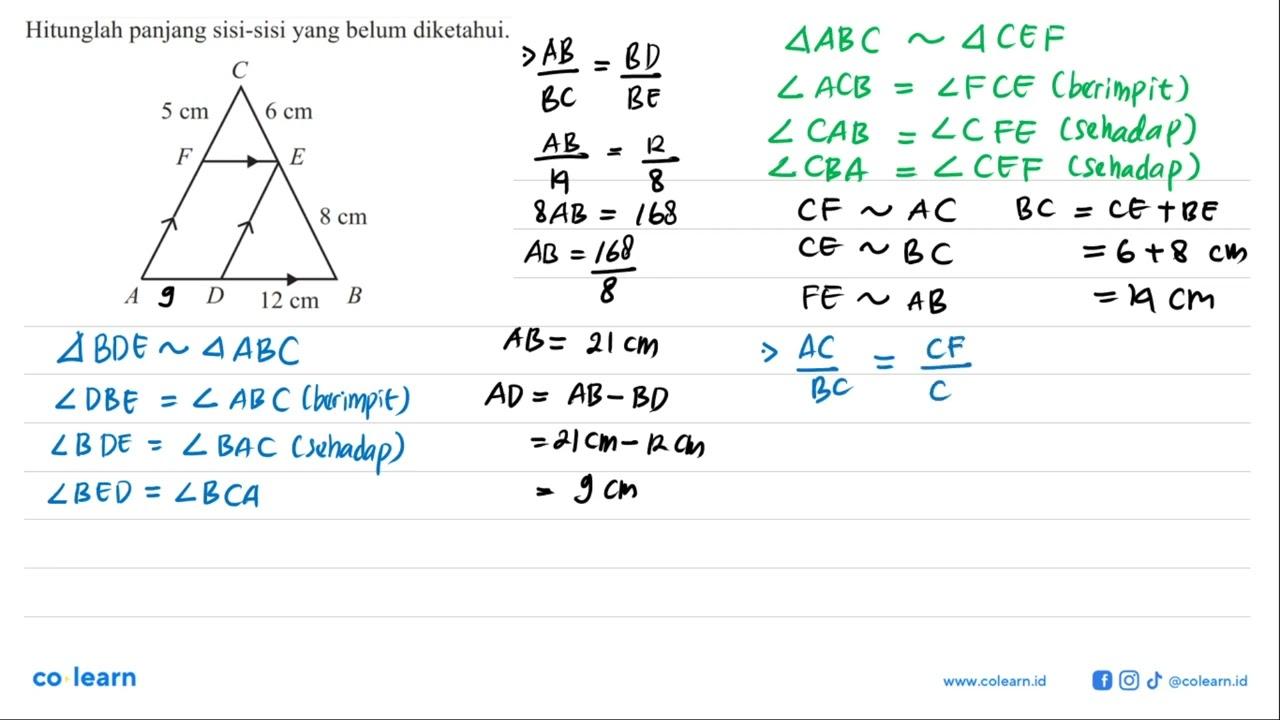 Hitunglah panjang sisi-sisi yang belum diketahui.
C
5 cm
6 cm
F
E
8 cm
A
9
D
12 cm
B
∆BDE ~ ∆ABC
∠DBE = ∠ABC (berimpit)
∠BDE = ∠BAC (sehadap)
∠BED = ∠BCA
> AB/BC = BD/BE
AB/14 = 12/8
8AB = 168
AB = 168/8
AB = 21 cm
AD = AB - BD
= 21 cm - 12 cm
= 9 cm
∆ABC ~ ∆CEF
∠ACB = ∠FCE (berimpit)
∠CAB = ∠CFE (sehadap)
∠CBA = ∠CEF (sehadap)
CF ~ AC
CE ~ BC
FE ~ AB
BC = CE + BE
= 6 + 8 cm
= 14 cm
> AC/BC = CF/C
co learn
www.colearn.id
@colearn.id